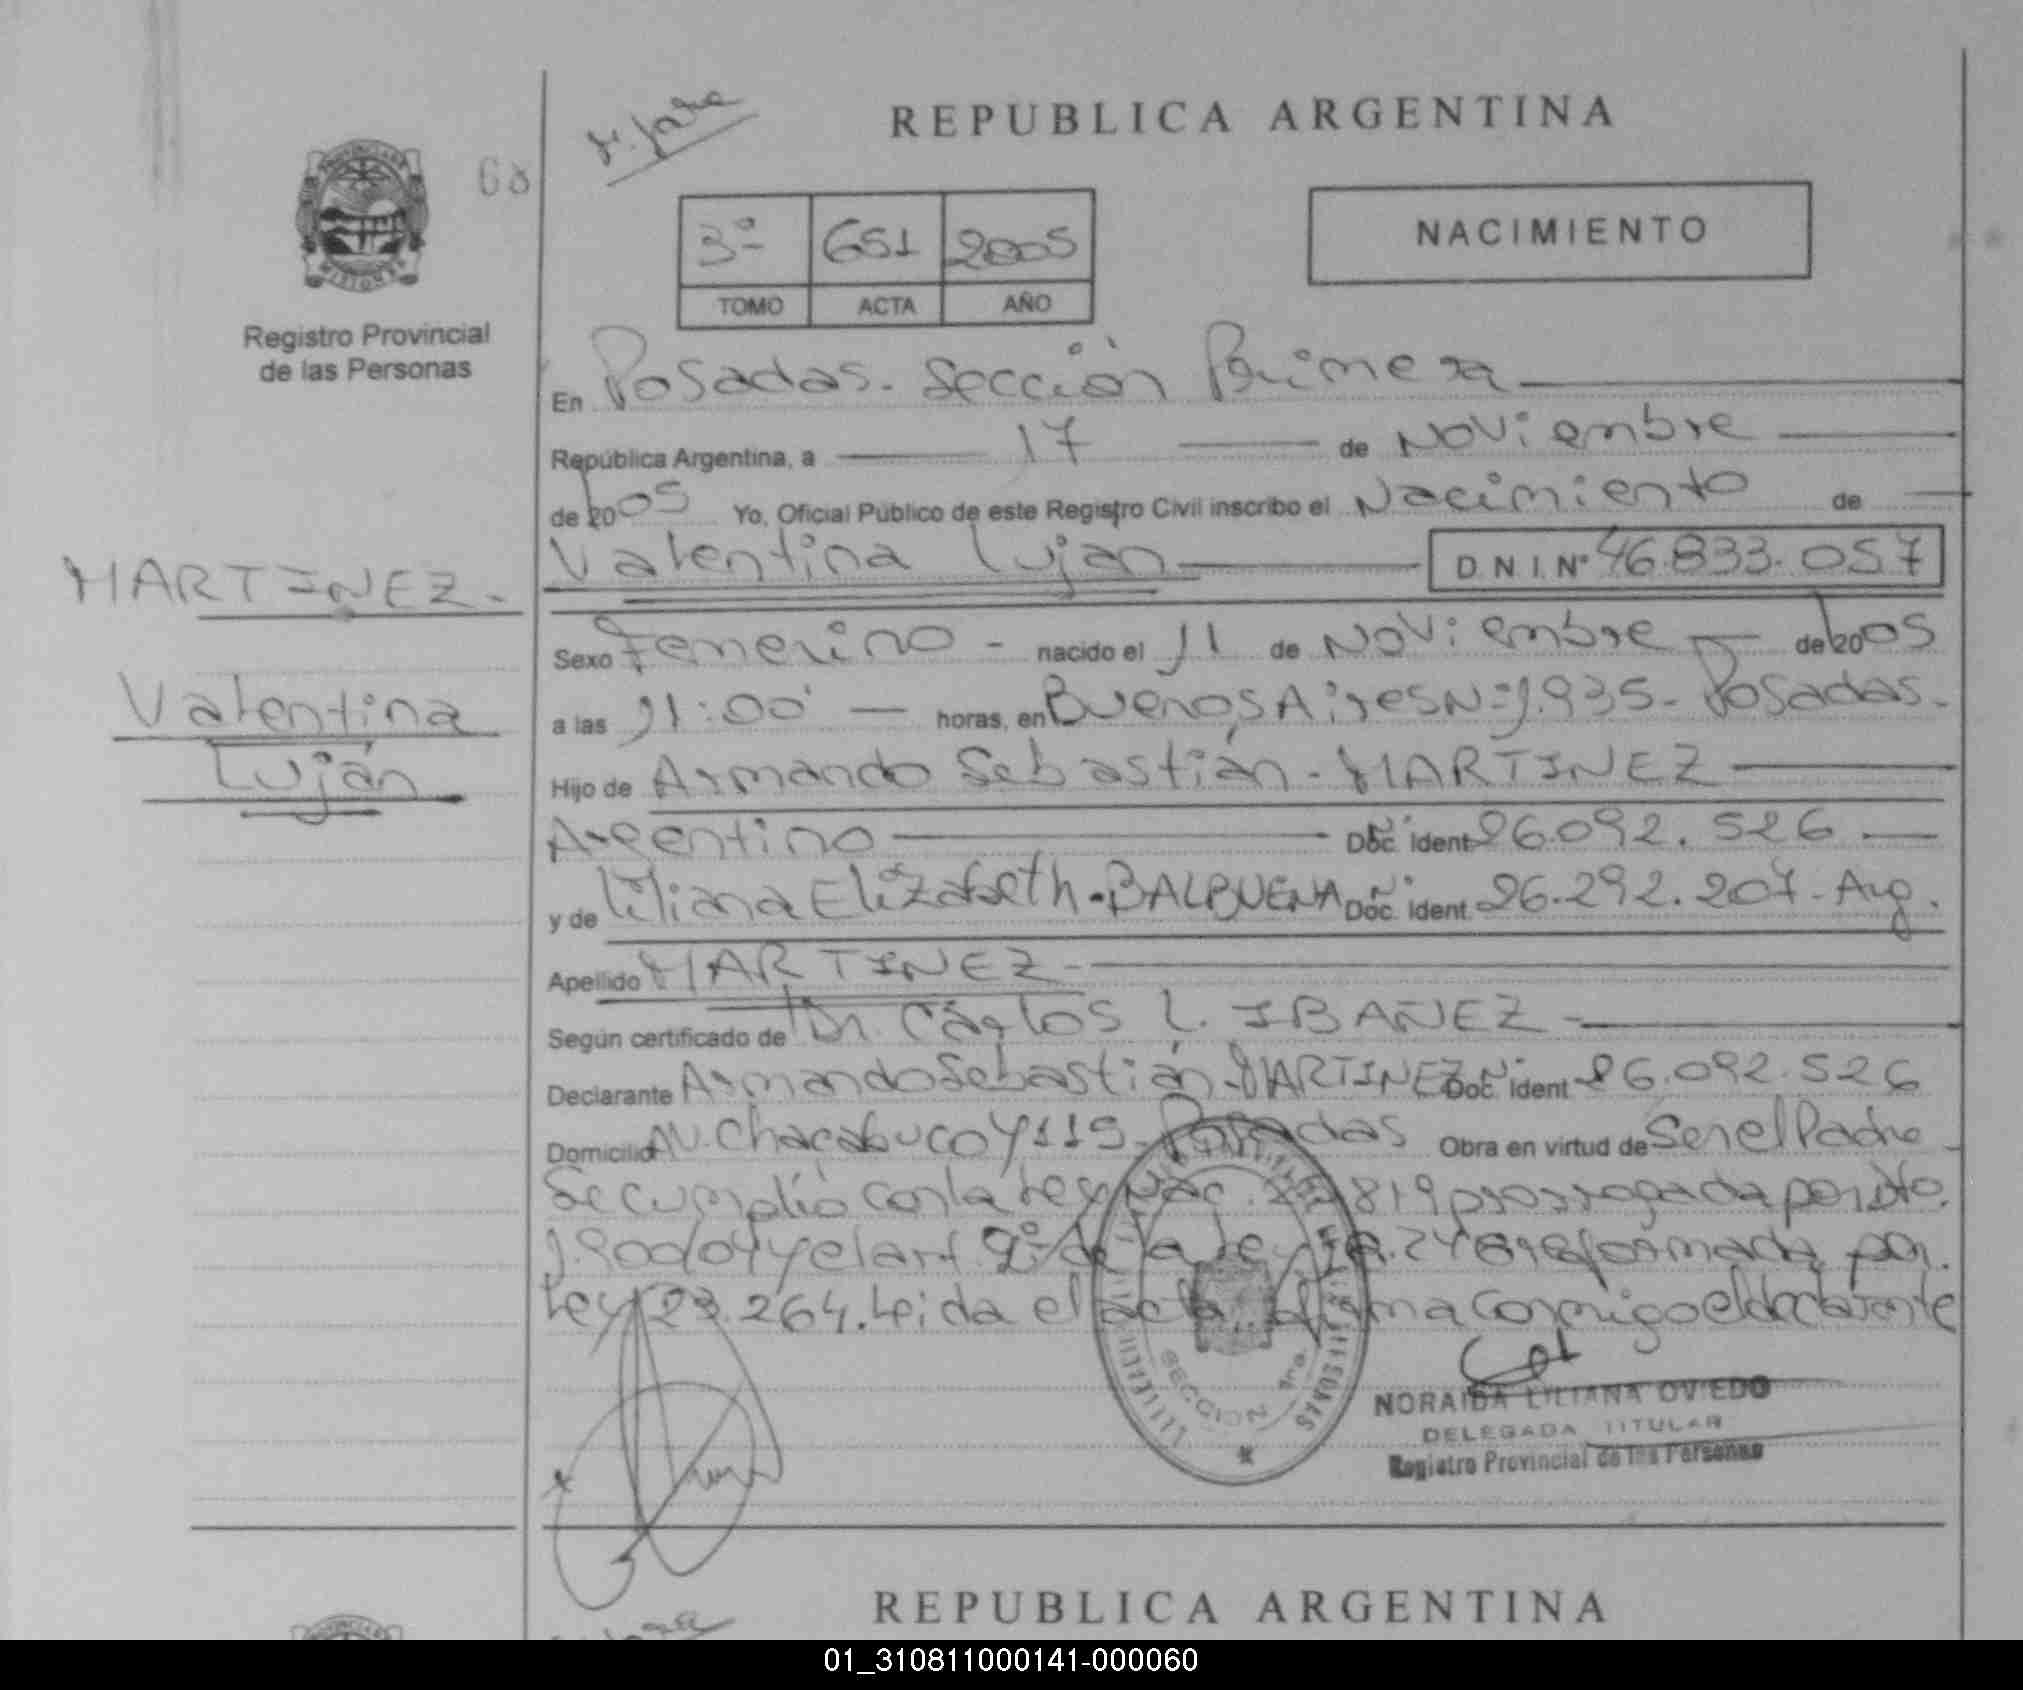 REPUBLICA ARGENTINA
68
3º 651 2005
TOMO ACTA AÑO
NACIMIENTO
PROVINCIA DE
MISIONES
Registro Provincial
de las Personas
En Posadas. Sección Primera
República Argentina, a 17 de Noviembre
de 2005 Yo, Oficial Público de este Registro Civil inscribo el Nacimiento de
Valentina Luján D N I. Nº 46.833.057
MARTINEZ.
Valentina
Luján
Sexo Femenino - nacido el 11 de Noviembre de 2005
a las 11:00 horas, en Buenos Aires Nº 1.935- Posadas.
Hijo de Armando Sebastián - MARTINEZ
Argentino Doc. Ident 26.092.526
y de Liliana Elizabeth - BALBUENA Doc. Ident. 26.292.207- Arg.
Apellido MARTINEZ-
Según certificado de Dr. Carlos L. IBAÑEZ-
Declarante Armando Sebastián MARTINEZ Doc. Ident 26.092.526
Domicilio AV. Chacabuco 4119- Posadas Obra en virtud de Ser el Padre
Se cumplió con la Ley Nac. 819 prorrogada por Dto.
1.900/04 y el art. 2º de la Ley 18.248 reformada por
Ley 23.264. Leída el acta, firma conmigo el declarante
SECCION 1ra.
NORAIDA LILIANA OVIEDO
DELEGADA TITULAR
Registro Provincial de las Personas
REPUBLICA ARGENTINA
01_310811000141-000060